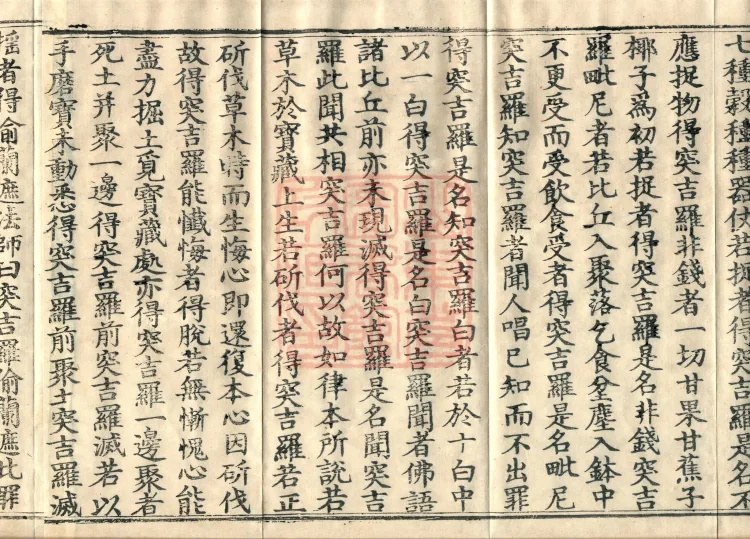 七種穀種種器仗若捉者得突吉羅是名不
應捉物得突吉羅非錢者一切甘果甘蕉子
椰子為初若捉者得突吉羅是名非錢突吉
羅毗尼者若比丘入聚落乞食坌塵入鉢中
不更受而受飲食受者得突吉羅是名毗尼
突吉羅知突吉羅者聞人唱已知而不出罪
得突吉羅是名知突吉羅白者若於十白中
以一白得突吉羅是名白突吉羅聞者佛語
諸比丘前亦未現滅得突吉羅是名聞突吉
羅此聞共相突吉羅何以故如律本所說若
草木於寶藏上生若斫伐者得突吉羅若正
斫伐草木時而生悔心即還復本心因斫伐
故得突吉羅能懺悔者得脫若無慚愧心能
盡力掘土覓寶藏處亦得突吉羅一邊聚者
死土并聚一邊得突吉羅前突吉羅滅若以
手磨寶未動悉得突吉羅前聚土突吉羅滅
搖者得偷蘭遮法師曰突吉羅偷蘭遮此罪